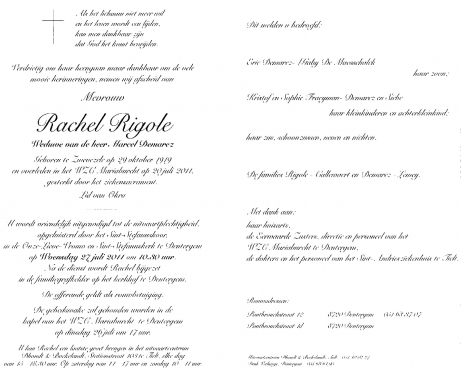 Als het lichaam niet meer wil
en het leven wordt een lijden,
kan men dankbaar zijn
dat God het komt bevrijden.
Verdrietig om haar heengaan maar dankbaar om de vele
mooie herinneringen, nemen wij afscheid van
Mevrouw
Rachel Rigole
Weduwe van de heer Marcel Demarez
Geboren te Zwevezele op 29 oktober 1919
en overleden in het WZC Mariaburcht op 20 juli 2011,
gesterkt door het ziekensacrament.
Lid van Okra
U wordt vriendelijk uitgenodigd tot de uitvaartplechtigheid,
opgeluisterd door het Sint-Stefanuskoor,
in de Onze-Lieve-Vrouw en Sint-Stefanuskerk te Dentergem
op Woensdag 27 juli 2011 om 10.30 uur.
Na de dienst wordt Rachel bijgezet
in de familiegrafkelder op het kerkhof te Dentergem.
De offerande geldt als rouwbetuiging.
De gebedswake zal gehouden worden in de
kapel van het WZC Mariaburcht te Dentergem
op dinsdag 26 juli om 17 uur.
U kan Rachel een laatste groet brengen in het uitvaartcentrum
Stationsstraat te Tielt, elke dag
Dit melden u bedroefd:
Eric Demarez - Gaby De Maesschalck
haar zoon;
Kristof en Sophie Fraeyman-Demarez en Siebe
haar kleinkinderen en achterkleinkind;
haar zus, schoonzussen, neven en nichten.
De families Rigole - Callewaert en Demarez - Loncy.
Met dank aan:
haar huisarts,
de Eerwaarde Zusters, directie en personeel van het
WZC Mariaburcht te Dentergem,
de dokters en het personeel van het Sint-Andriesziekenhuis te Tielt.
Rouwadressen:
8720 Dentergem
8720 Dentergem